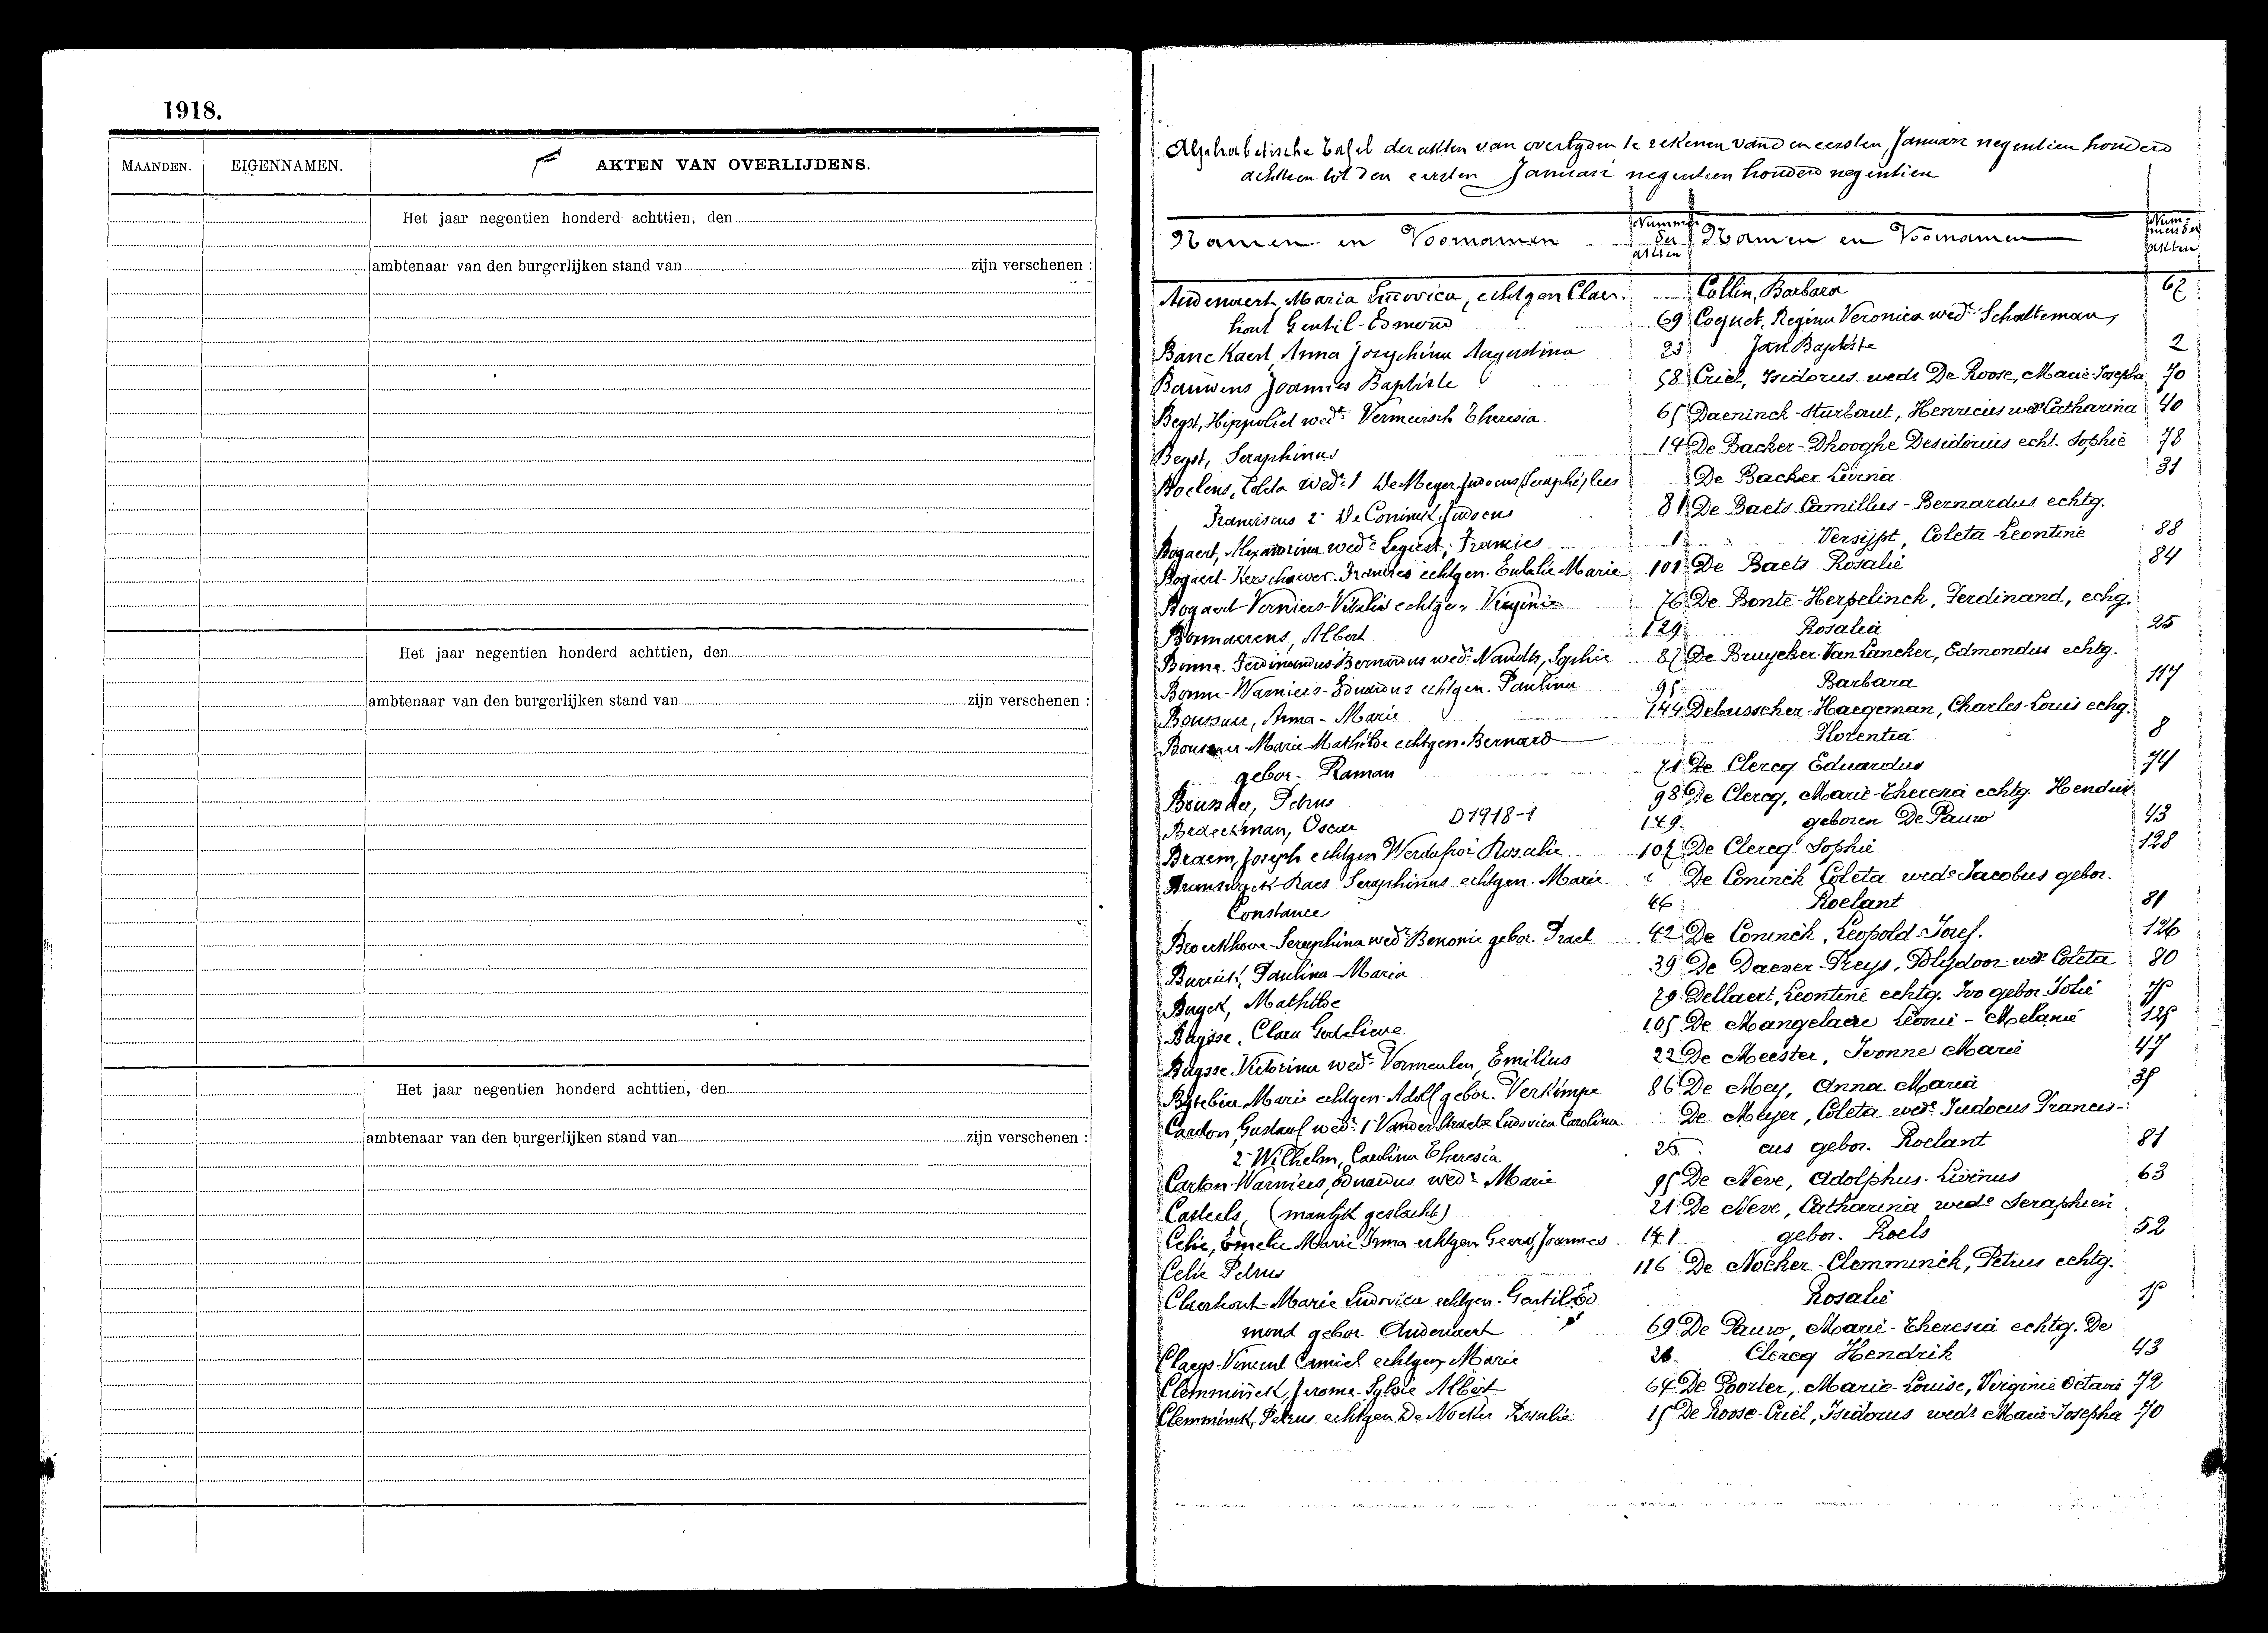 1918.
MAANDEN. EIGENNAMEN. AKTEN VAN OVERLIJDENS.
Het jaar negentien honderd achttien, den
ambtenaar van den burgerlijken stand van zijn verschenen :
Het jaar negentien honderd achttien, den
ambtenaar van den burgerlijken stand van zijn verschenen :
Het jaar negentien honderd achttien, den
ambtenaar van den burgerlijken stand van zijn verschenen :
Alphabetische tafel der akten van overlyden te rekenen van den eersten Januari negentien honderd
achtteen tot den eersten Januari negentien honderd negentien
Namen en Voornamen Nummers der akten
Audenaert, Maria Ludovica, echtgen Claer-
hout Gentil-Edmond 69
Banckaert, Anna Josephina Augustina 23
Bauwens Joannes Baptiste 58
Beyst, Hippoliet wedr Vermeirsch Theresia 65
Beyst, Seraphinus 14
Roelens, Coleta wede 1 De Meyer Judocus
Franciscus 2 De Coninck Judocus 81
Bogaert, Alexandrina wede Francies 1
Bogaert- echtgen. Eulalie Marie 101
Bogaert-Verniers-Vitalis echtgen Virginie 76
Bonnaerens, Albert 129
Bonne, Ferdinandus-Bernardus wedr Sophie 87
Bonne-Warniers-Eduardus echtgen. Paulina 95
Anna-Marie 144
Marie-Mathilde echtgen. Bernard
gebor. Raman 71
Petrus 98
Braeckman, Oscar D1918-1 149
Braem, Joseph echtgen Rosalie 107
Raes Seraphinus echtgen. Marie
Constance 46
Seraphina wede Bononie gebor. Praet 42
Paulina-Maria 39
Buyck, Mathilde 79
Buysse, Clara Godelieve 105
Buysse Victorina wede Vermeulen, Emilius 22
Marie echtgen. Adolf gebor. Verkimpe 86
Cardon, Gustaaf wedr 1 Vander Straete Ludovica Carolina
2 Wilhelm, Carolina Theresia 25
Carton-Warniers, Eduardus wedr Marie 95
Casteels, (manlijk geslacht) 21
Celie, Emelie Marie Irma echtgen Geerts Joannes 141
Celie Petrus 116
Claerhout-Marie Ludovica echtgen. Gentil Ed
mond gebor. Audenaert 69
Claeys-Vincent Camiel echtgen Marie 26
Clemminck, Jerome-Sylvie Albert 64
Clemminck, Petrus echtgen De Nocker Rosalie 15
Namen en Voornamen Nummers der akten
Collin, Barbara 67
Coquet, Regina Veronica wede Schatteman,
Jan Baptiste 2
Criel, Isidorus wedr De Roose, Marie-Josepha 70
Daeninck-Hurbaut, Henricus wedr Catharina 40
De Backer-Dhooghe Desiderius echt. Sophie 78
De Backer Livina 31
De Baets Camillus-Bernardus echtg.
Versijpt, Coleta-Leontine 88
De Baets Rosalie 84
De Bonte-Herpelinck, Ferdinand, echg.
Rosalia 25
De Bruycker-Van Lancker, Edmondus echtg.
Barbara 117
Debusscher-Haegeman, Charles-Louis echg.
8
De Clercq Eduardus 74
De Clercq, Marie-Theresia echtg. Hendrik
geboren De Pauw 43
De Clercq Sophie 128
De Coninck Coleta wede Jacobus gebor.
Roelant 81
De Coninck, Leopold-Josef. 126
De Daever-Preys, Polydoor wedr Coleta 80
Dellaert, Leontine echtg. Ivo gebor.
De Mangelaere Leonie-Melanie 125
De Meester, Ivonne Marie 47
De Mey, Anna Maria 35
De Meyer, Coleta wede Judocus Francis-
cus gebor. Roelant 81
De Neve, Adolphus-Livinus 63
De Neve, Catharina wede Seraphien
gebor. Roels 52
De Nocker-Clemminck, Petrus echtg.
Rosalie 15
De Pauw, Marie-Theresia echtg. De
Clercq Hendrik 43
De Poorter, Marie-Louise, Virginie Octavie 72
De Roose-Criel, Isidorus wedr Marie-Josepha 70